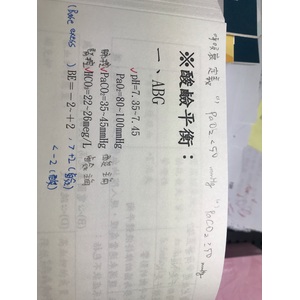 呼吸衰竭定義 (1) PaO2<50 mmHg (2) PaCO2≥50 mmHg
※酸鹼平衡：
一、ABG
√pH=7.35~7.45
PaO2=80~100mmHg
√PaCO2=35~45mmHg 酸
√HCO3=22~26meq/L
(Base excess) BE=-2~+2, >+2 (鹼)
<-2 (酸)